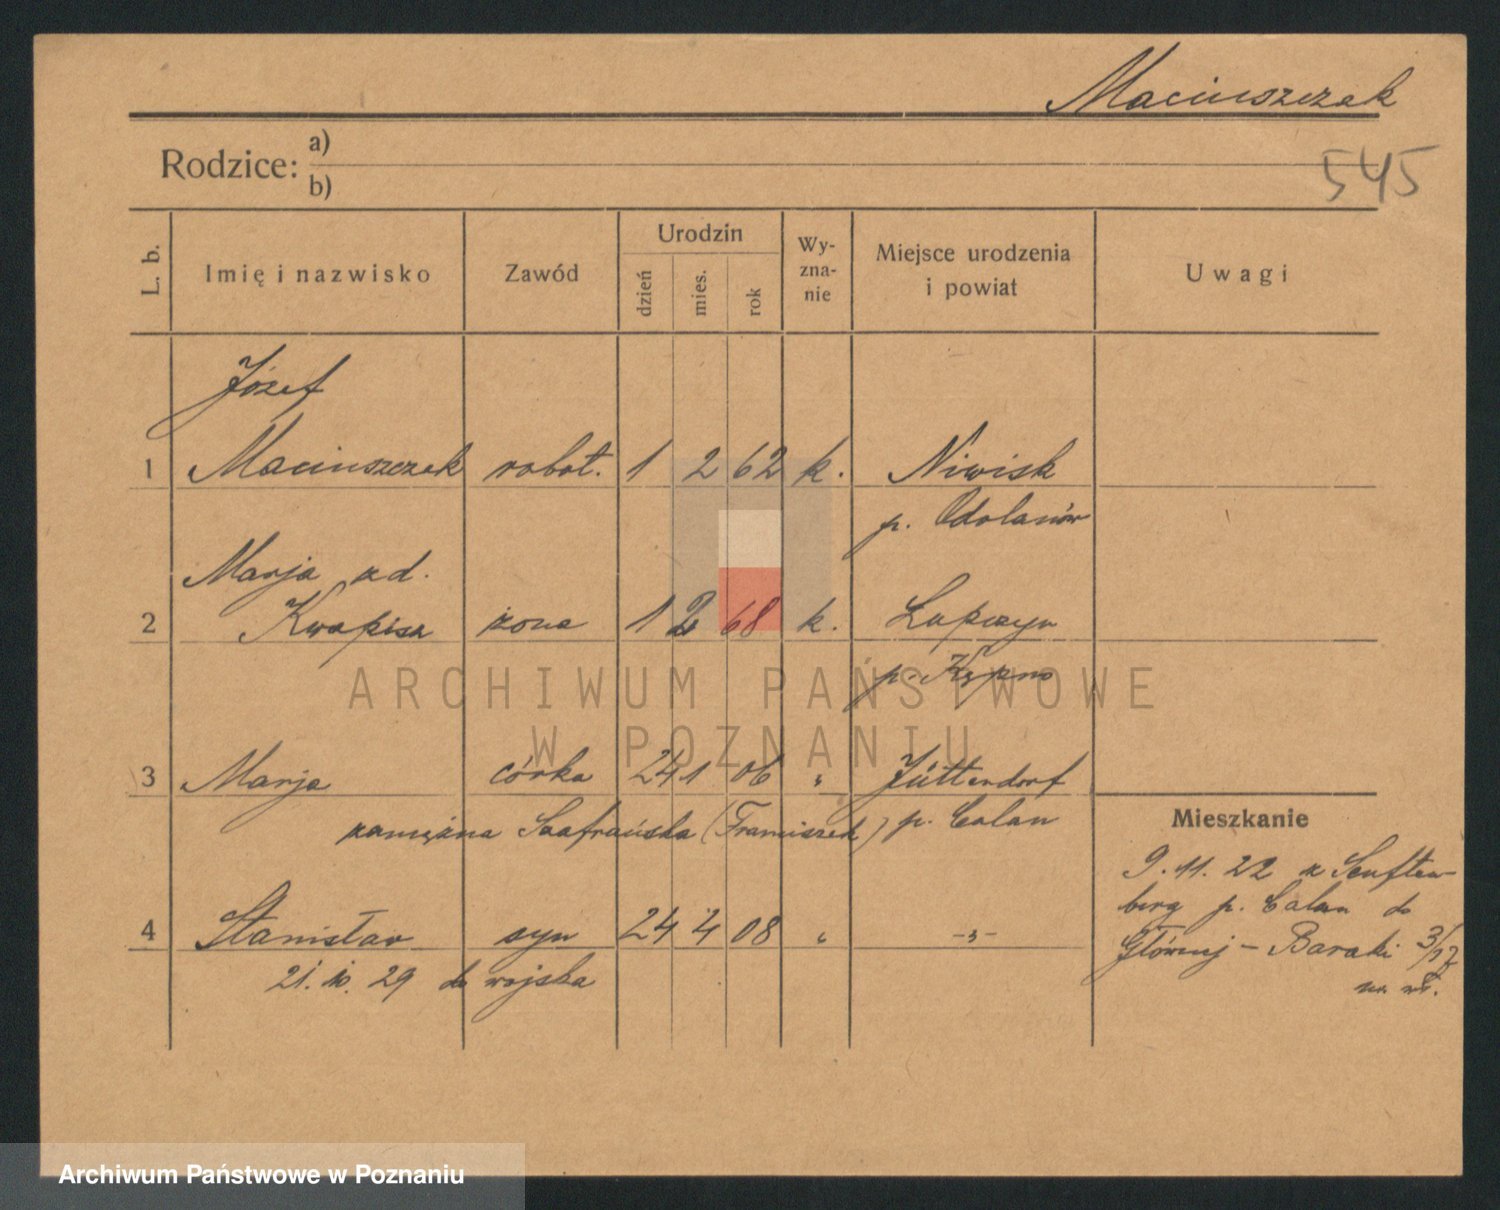 Maciuszczak
Rodzice: a)
b)
545
L. b.
Imię i nazwisko
Zawód
Urodzin
dzień
mies.
rok
Wy-
zna-
nie
Miejsce urodzenia
i powiat
Uwagi
Józef
1 Maciuszczak robot. 1 2 62 k. Niwisk
p. Odolanów
Marja zd.
2 Kwapisz żona 1 2 68 k. Łupczyn
p. Kępno
3 Marja córka 24 1 06 " Jüttendorf
zamężna Szafrańska (Franciszek) p. Calau
4 Stanisław syn 24 4 08 " -"-
21. 10. 29 do wojska
Mieszkanie
9. 11. 22 z Senften-
berg p. Calau do
Główny - Baraki 3/17
ARCHIWUM PAŃSTWOWE
W POZNANIU
Archiwum Państwowe w Poznaniu